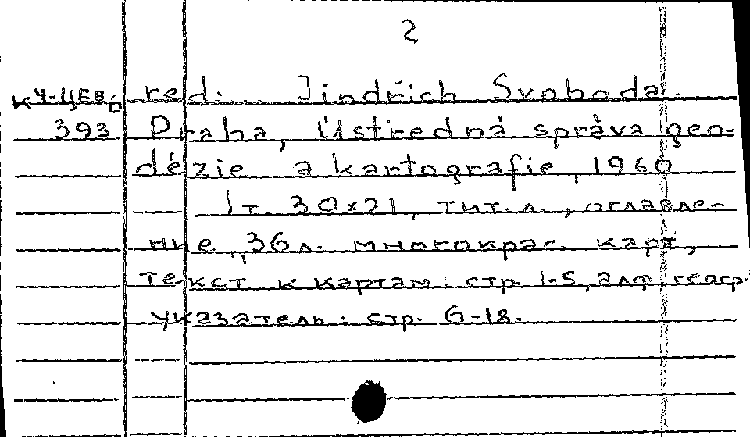 2
К4-ЦЕВ. red. Jindřich Svoboda.
393 Praha, Ústredná správa geo-
dézie a kartografie, 1960
1т. 30×21, тит. л., оглавле-
ние, 36 л. многокрас. карт,
текст к картам: стр. 1-5, алф. геогр.
указатель: стр. 6-18.